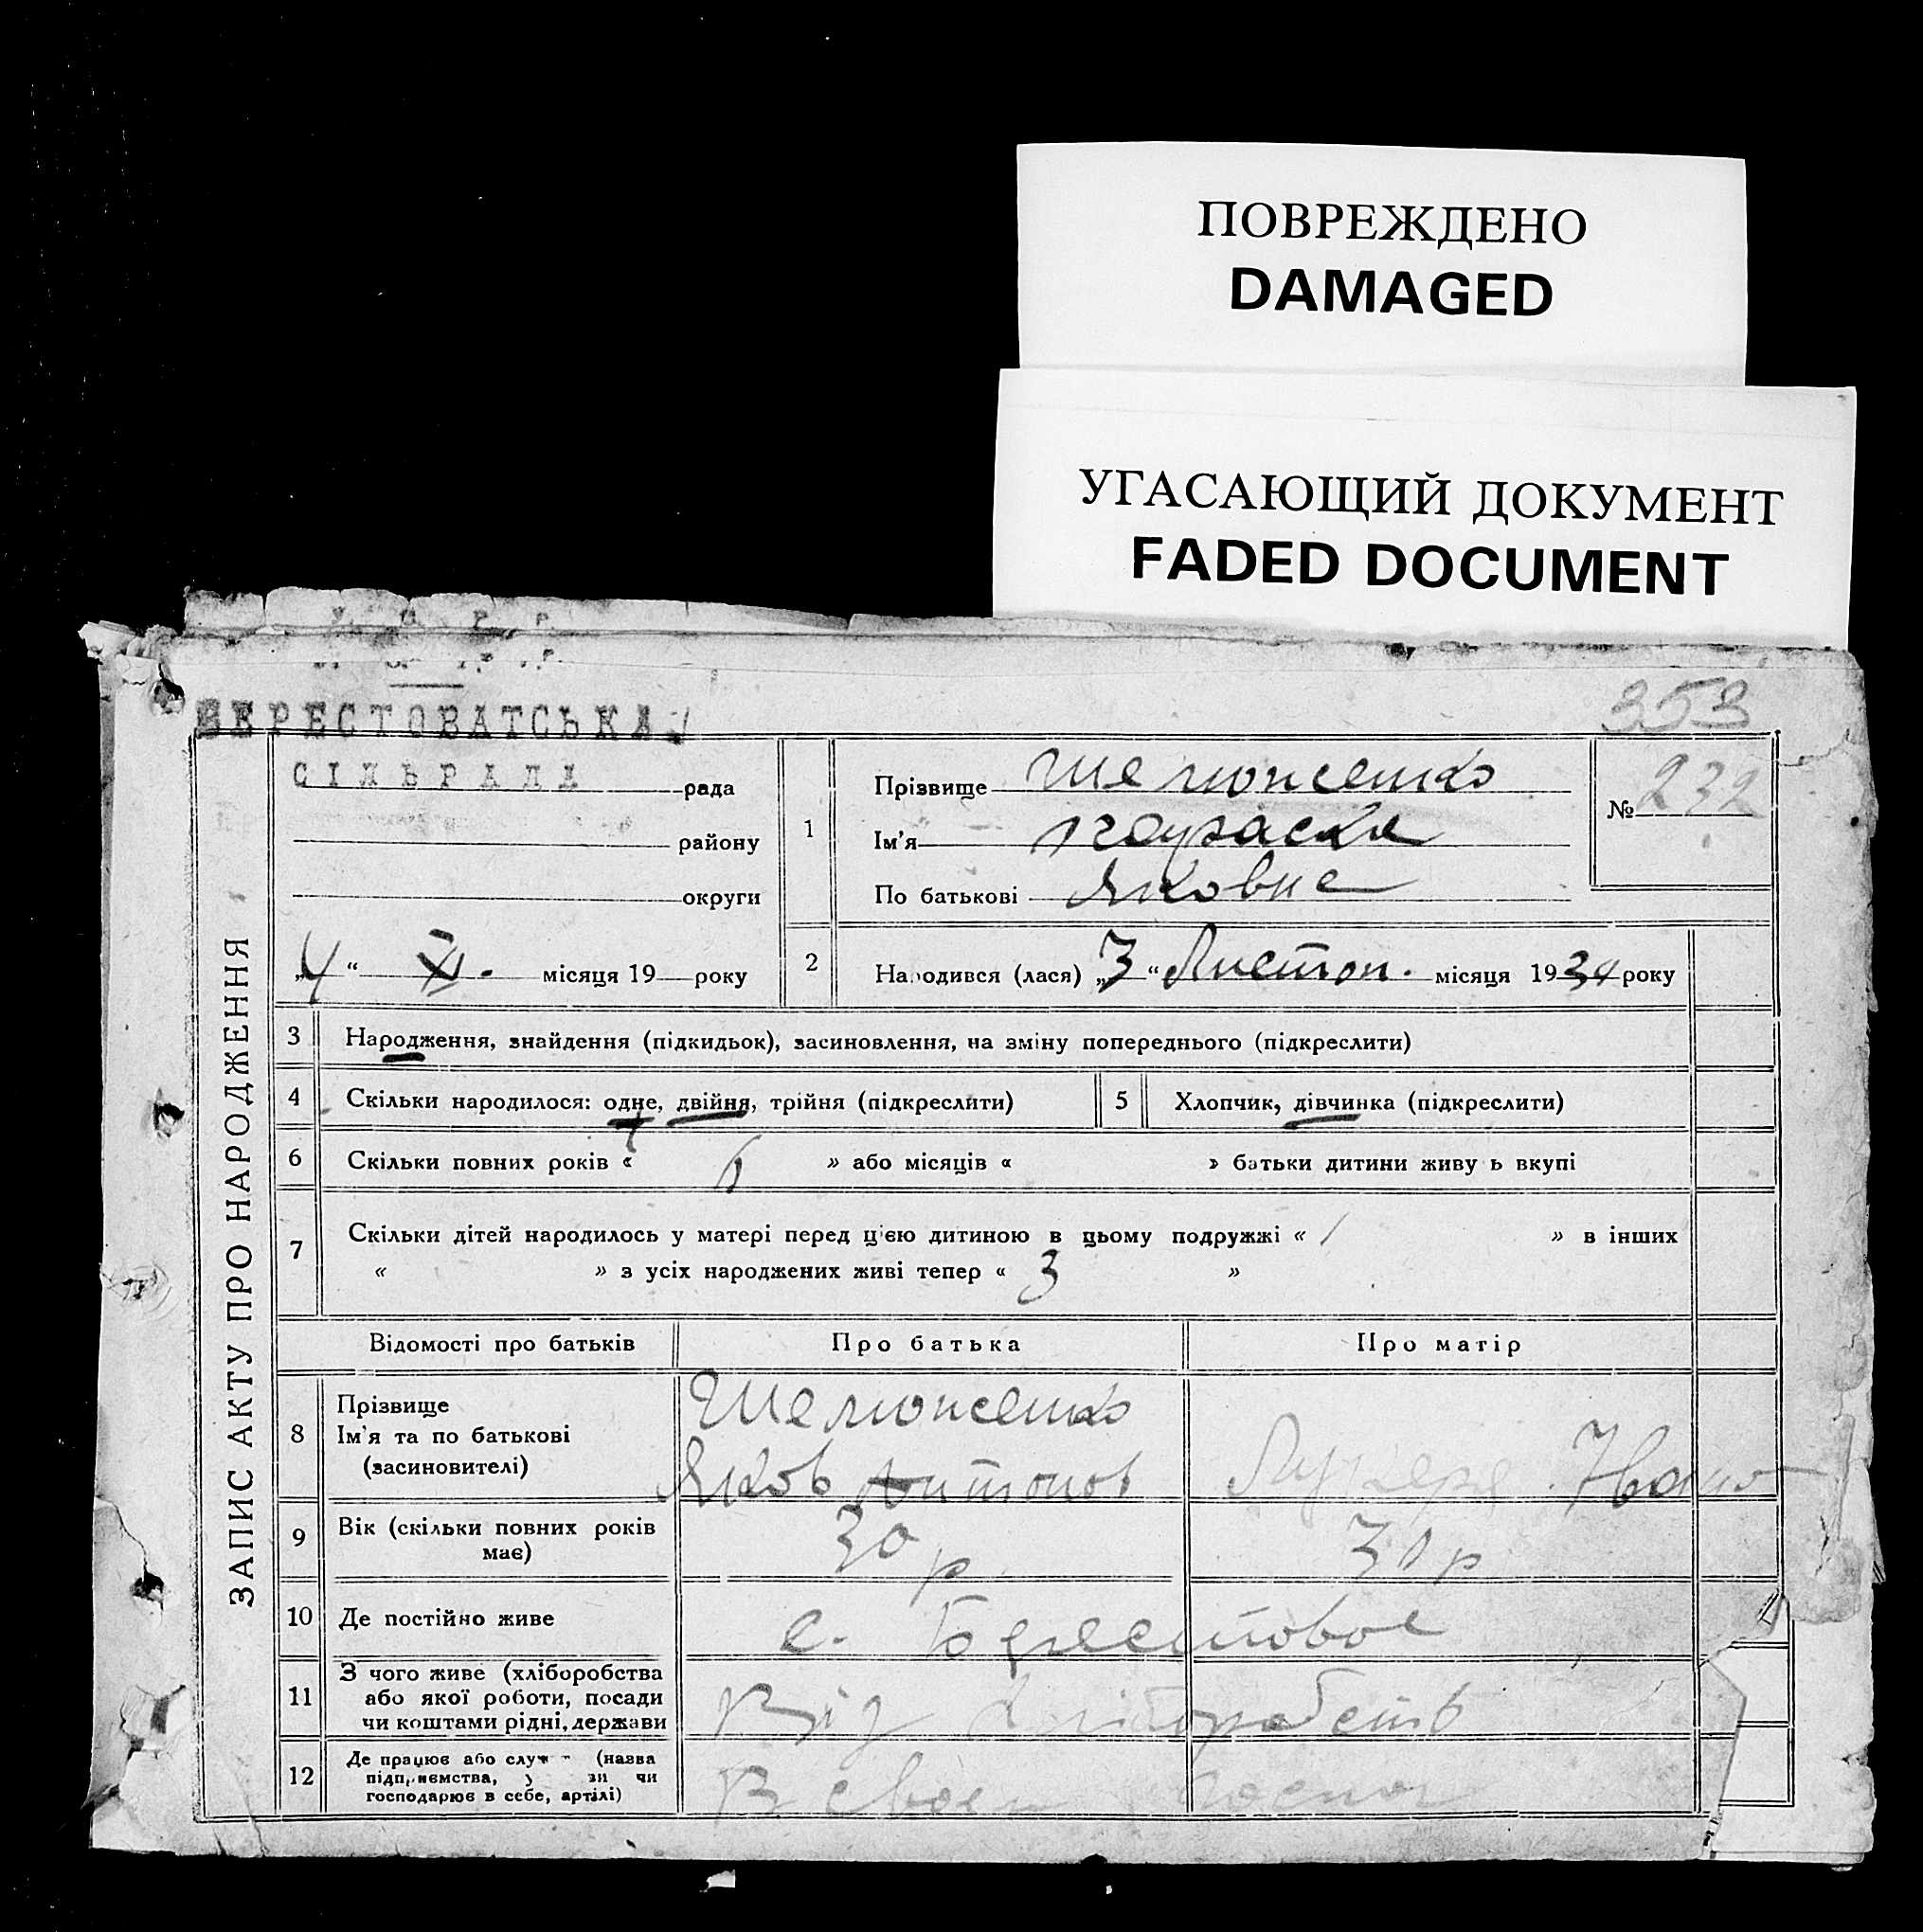 ПОВРЕЖДЕНО
DAMAGED
УГАСАЮЩИЙ ДОКУМЕНТ
FADED DOCUMENT
353
БЕРЕСТОВАТСЬКА
СІЛЬРАДА рада
району
округи
„4“ XI. місяця 19 року
ЗАПИС АКТУ ПРО НАРОДЖЕННЯ
1
Прізвище
Ім'я Параска
По батькові Яковне
№ 232
2 Народився (лася) „3“ Листоп. місяця 1930 року
3 Народження, знайдення (підкидьок), засиновлення, на зміну попереднього (підкреслити)
4 Скільки народилося: одне, двійня, трійня (підкреслити)
5 Хлопчик, дівчинка (підкреслити)
6 Скільки повних років « 6 » або місяців « » батьки дитини живу ь вкупі
7 Скільки дітей народилось у матері перед ц'єю дитиною в цьому подружжі « 1 » в інших
« » з усіх народжених живі тепер « 3 »
Відомості про батьків Про батька Про матір
8 Прізвище
Ім'я та по батькові
(засиновителі)
Яков Антонов
Лукеря Івано
9 Вік (скільки повних років
має)
30 р
30 р
10 Де постійно живе
с. Берестовое
11 З чого живе (хліборобства
або якої роботи, посади
чи коштами рідні, держави
Від хліборобств
12 Де працює або служ (назва
підприємства, у зи чи
господарює в себе, артілі)
В своем